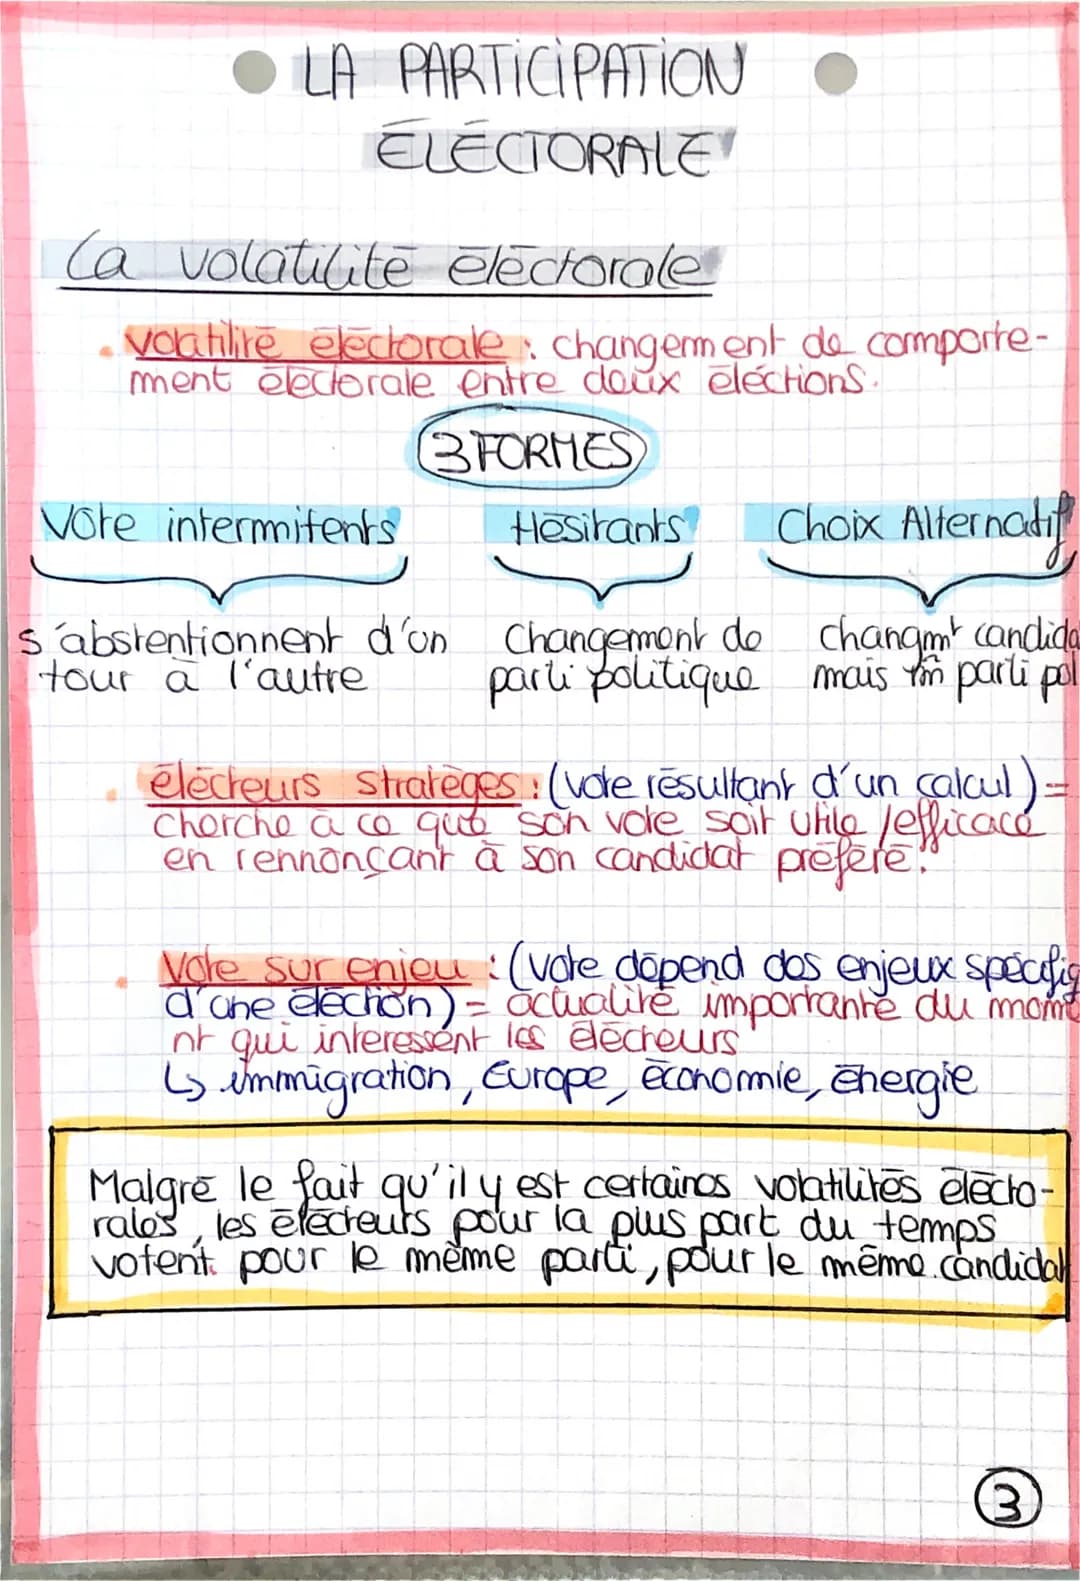 LA PARTICIPATION
ÉLÉCTORALE
La volatilité éléctorale
• volatilité éléctorale : changement de comporte-
ment éléctorale entre deux éléctions.
3 FORMES
Vote intermitents Hésitants Choix Alternatif
s'abstentionnent d'un Changement de changmt candida
tour à l'autre parti politique mais mm parti pol
• élécteurs stratèges : (vote résultant d'un calcul) =
cherche à ce que son vote soit utile /efficace
en rennonçant à son candidat préféré."
• Vote sur enjeu : (vote dépend des enjeux spécifiq
d'une éléction) = actualité importante du mome
nt qui interessent les élécteurs
↳ immigration, Europe, économie, énergie
Malgré le fait qu'il y est certaines volatilités élécto-
rales, les élécteurs pour la plus part du temps
votent pour le même parti, pour le même candidat
3